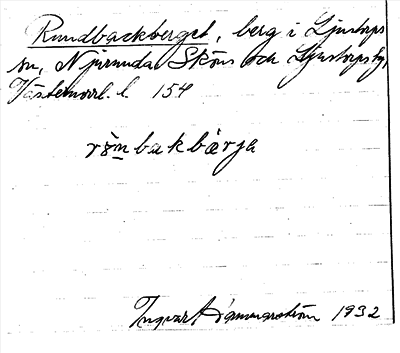 Rundbackberget, berg i Ljustorps
sn, Njurunda Sköns och Ljustorps tg,
Västernorrl. l. 154
Ingvar Hammarström 1932